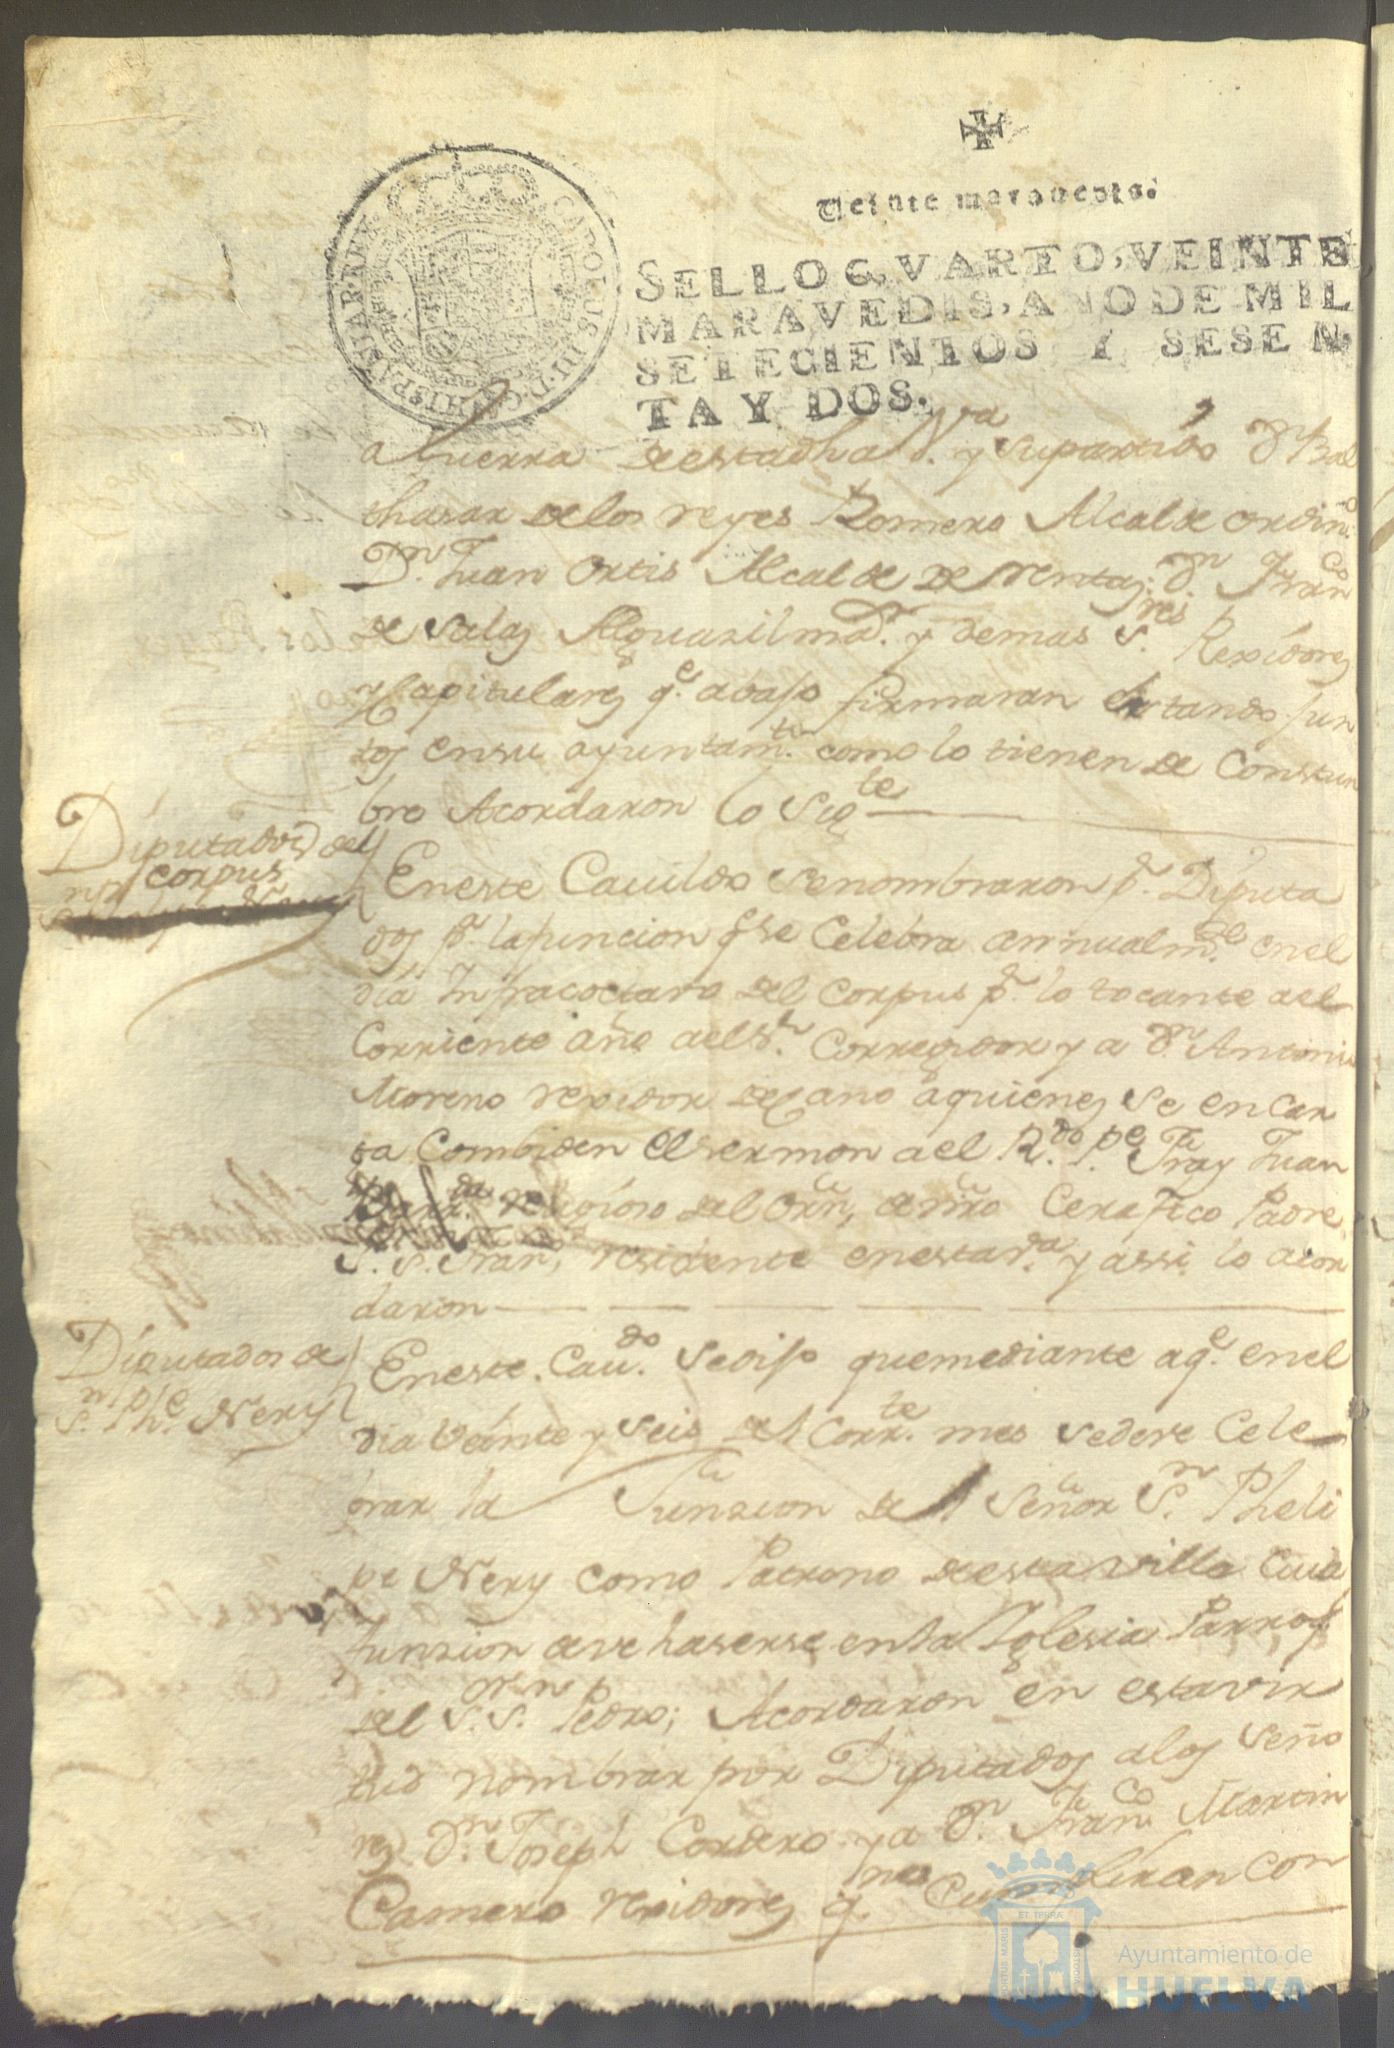 ✠
Veinte maravedis.
CAROLUS III D G HISPANIAR REX
SELLO QVARTO, VEINTE
MARAVEDIS, AÑO DE MIL
SETECIENTOS Y SESEN
TA Y DOS.
a Guerra de esta dha Va. y su partido Dn Bal
thasar delos reyes Romero Alcalde ordino.
Dn. Juan Ortis Alcalde de Rentas; Dn. Franco
de Salas Alguasil mor. y demas Sres. Rexidores
y Capitulares qe. abajo firmaran estando jun
tos en su ayuntamto. como lo tienen de Constun
bre Acordaron lo Sigte
Diputados del
corpus
En este Cauildo se nombraron pr. Diputa
dos pa. la funcion qe se Celebra annualmte. en el
dia Infraoctavo del Corpus pr. lo tocante ael
Corriente año ael Sr. Corregidor y a Dn Antonio
Moreno rexidor decano a quienes se encar
ga Combiden el sermon a el Rdo. Pe. Fray Juan
religioso del Orn, de nro Cerafico Padre
S. S. Fran, residente en esta Va. y assi lo acor
daron
Diputados de
Sn. Phe. Nery
En este Caudo. se dijo que mediante a qe. en el
dia veinte y seis del Corrte. mes se deve Cele
brar la Funzion del Señor Sn. Pheli
pe Nery como Patrono de esta villa Cuia
funzion deve haserse en la Iglesia Parroql
del Sr. Sn. Pedro; Acordaron en esta vir
tud nombrar por Diputados alos Seño
res Dn. Joseph Cordero y a Dn. Franco Martin
Camero rexidores qnes Cumpliran con
Ayuntamiento de
HUELVA